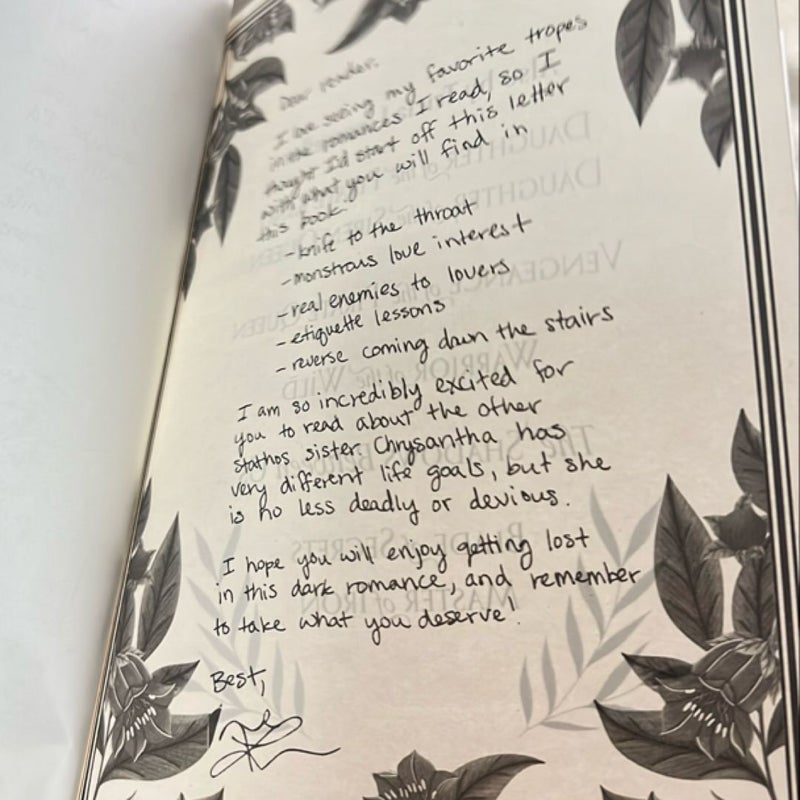 Dear reader,
I love seeing my favorite tropes
in the romances I read, so I
thought I'd start off this letter
with what you will find in
this book.
- knife to the throat
- monstrous love interest
- real enemies to lovers
- etiquette lessons
- reverse coming down the stairs
I am so incredibly excited for
you to read about the other
stathos sister. Chrysantha has
very different life goals, but she
is no less deadly or devious.
I hope you will enjoy getting lost
in this dark romance, and remember
to take what you deserve!
Best,